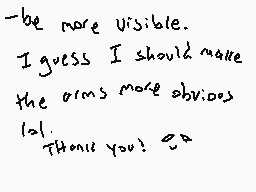 -be more visible.
I guess I should make
the arms more obvious
lol.
Thank you!